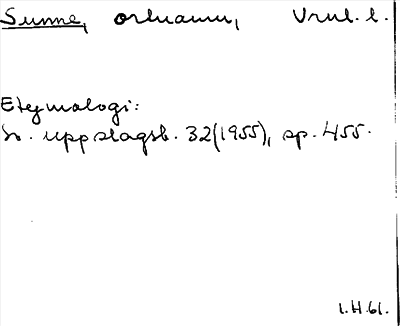 Sunne, ortnamn, Vrml. l.
Etymologi:
Sv. uppslagsb. 32(1955), sp. 455.
I.H.61.